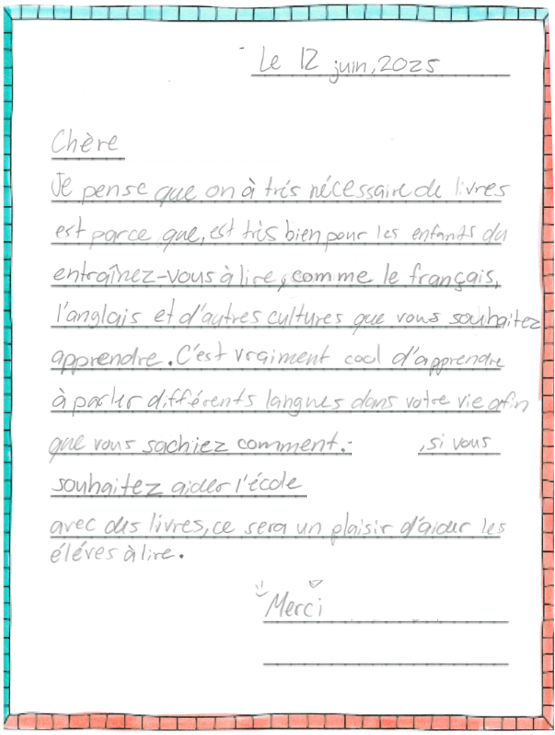 Le 12 juin, 2025
Chère
Je pense que on à trés nécessaire de livres
est parce que, est très bien pour les enfants du
entraînez-vous à lire, comme le français,
l'anglais et d'autres cultures que vous souhaitez
apprendre. C'est vraiment cool d'apprendre
à parler différents langues dans votre vie afin
que vous sachiez comment. ,si vous
souhaitez aider l'école
avec des livres, ce sera un plaisir d'aider les
éléves à lire.
Merci